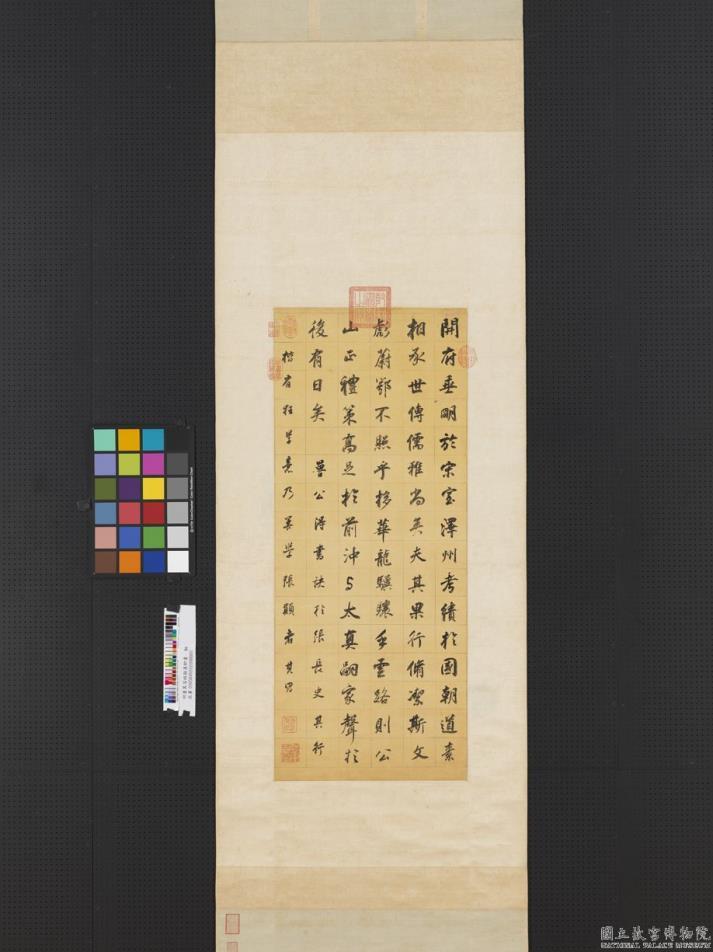 開府垂明於宋室澤州考績於國朝道素
相承世傳儒雅尚矣夫其果行脩潔斯文
彪蔚鄂不照乎移華龍驥驤乎雲路則公
山正禮策高足於前沖与太真嗣家聲於
後有日矣　魯公得書訣於張長史其行
楷有狂草意乃善學張顛者其昌
國立故宮博物院
NATIONAL PALACE MUSEUM